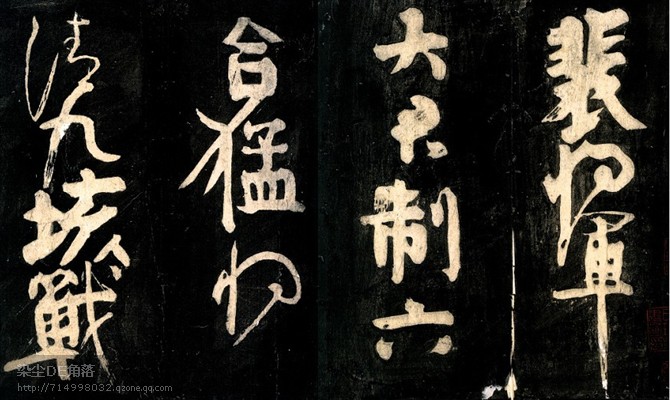 裴将軍
大君制六
合猛将
清九垓戰
染尘DE角落
http://714998032.qzone.qq.com